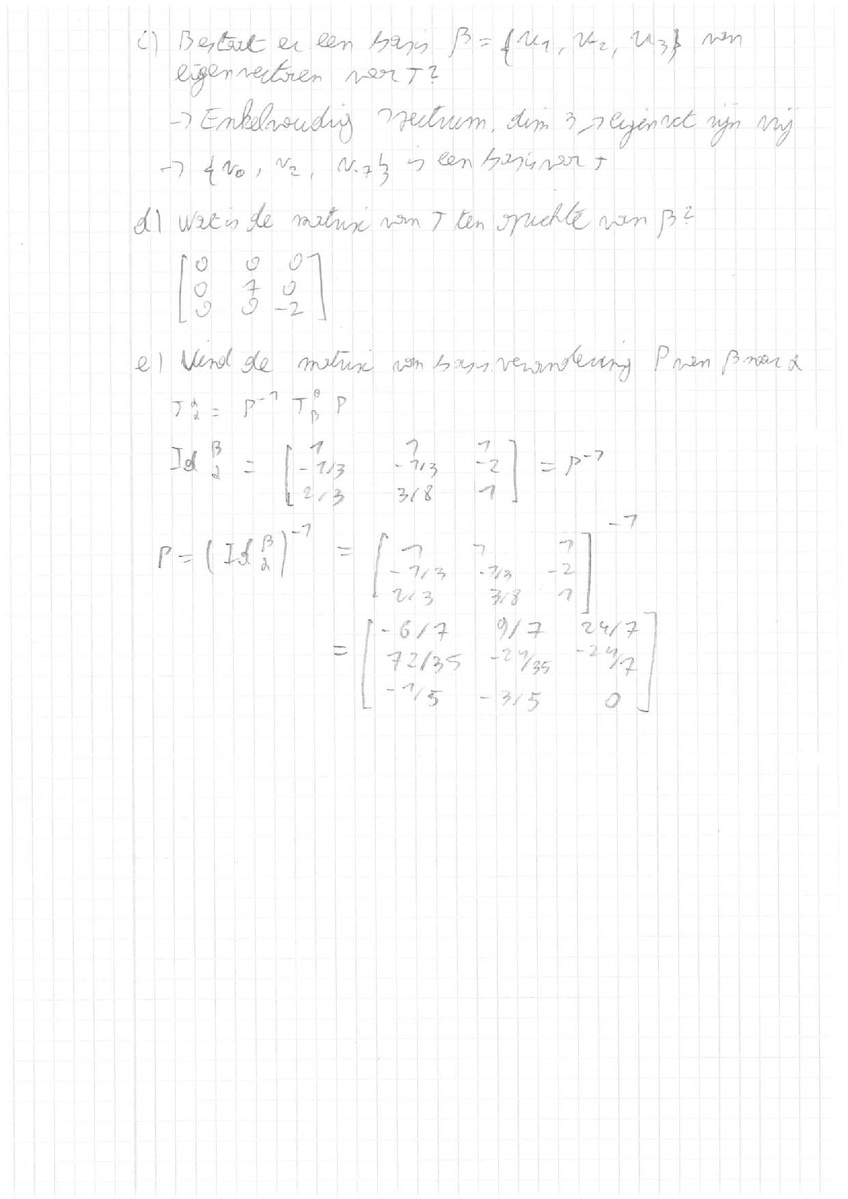 c) Bestaat er een basis β = {u1, u2, u3} van
eigenvectoren voor T?
→ Enkelvoudig spectrum, dim 3, → eigenvct zijn vrij
→ {v0, v2, v-7} is een basis voor T
d) Wat is de matrix van T ten opzichte van β?
[0 0 0
0 7 0
0 0 -2]
e) Vind de matrix van basisverandering P van β naar α
T α α = P^-1 T β β P
Id β α = [1 1 1
-1/3 -1/3 -2
2/3 3/8 1] = P^-1
P = (Id β α)^-1 = [1 1 1
-1/3 -1/3 -2
2/3 3/8 1]^-1
= [-6/7 9/7 24/7
72/35 -24/35 -24/7
-1/5 -3/5 0]